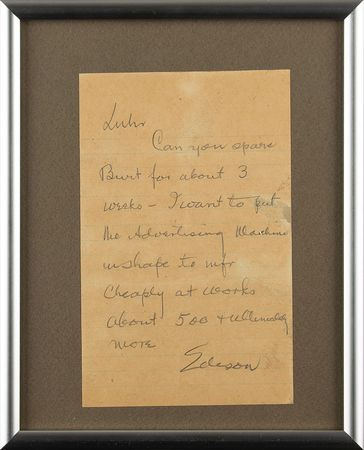 Luhr
Can you spare
Burt for about 3
weeks - I want to put
the Advertising Machine
in shape to mfr
Cheaply at works
about 500 & ultimately
more
Edison